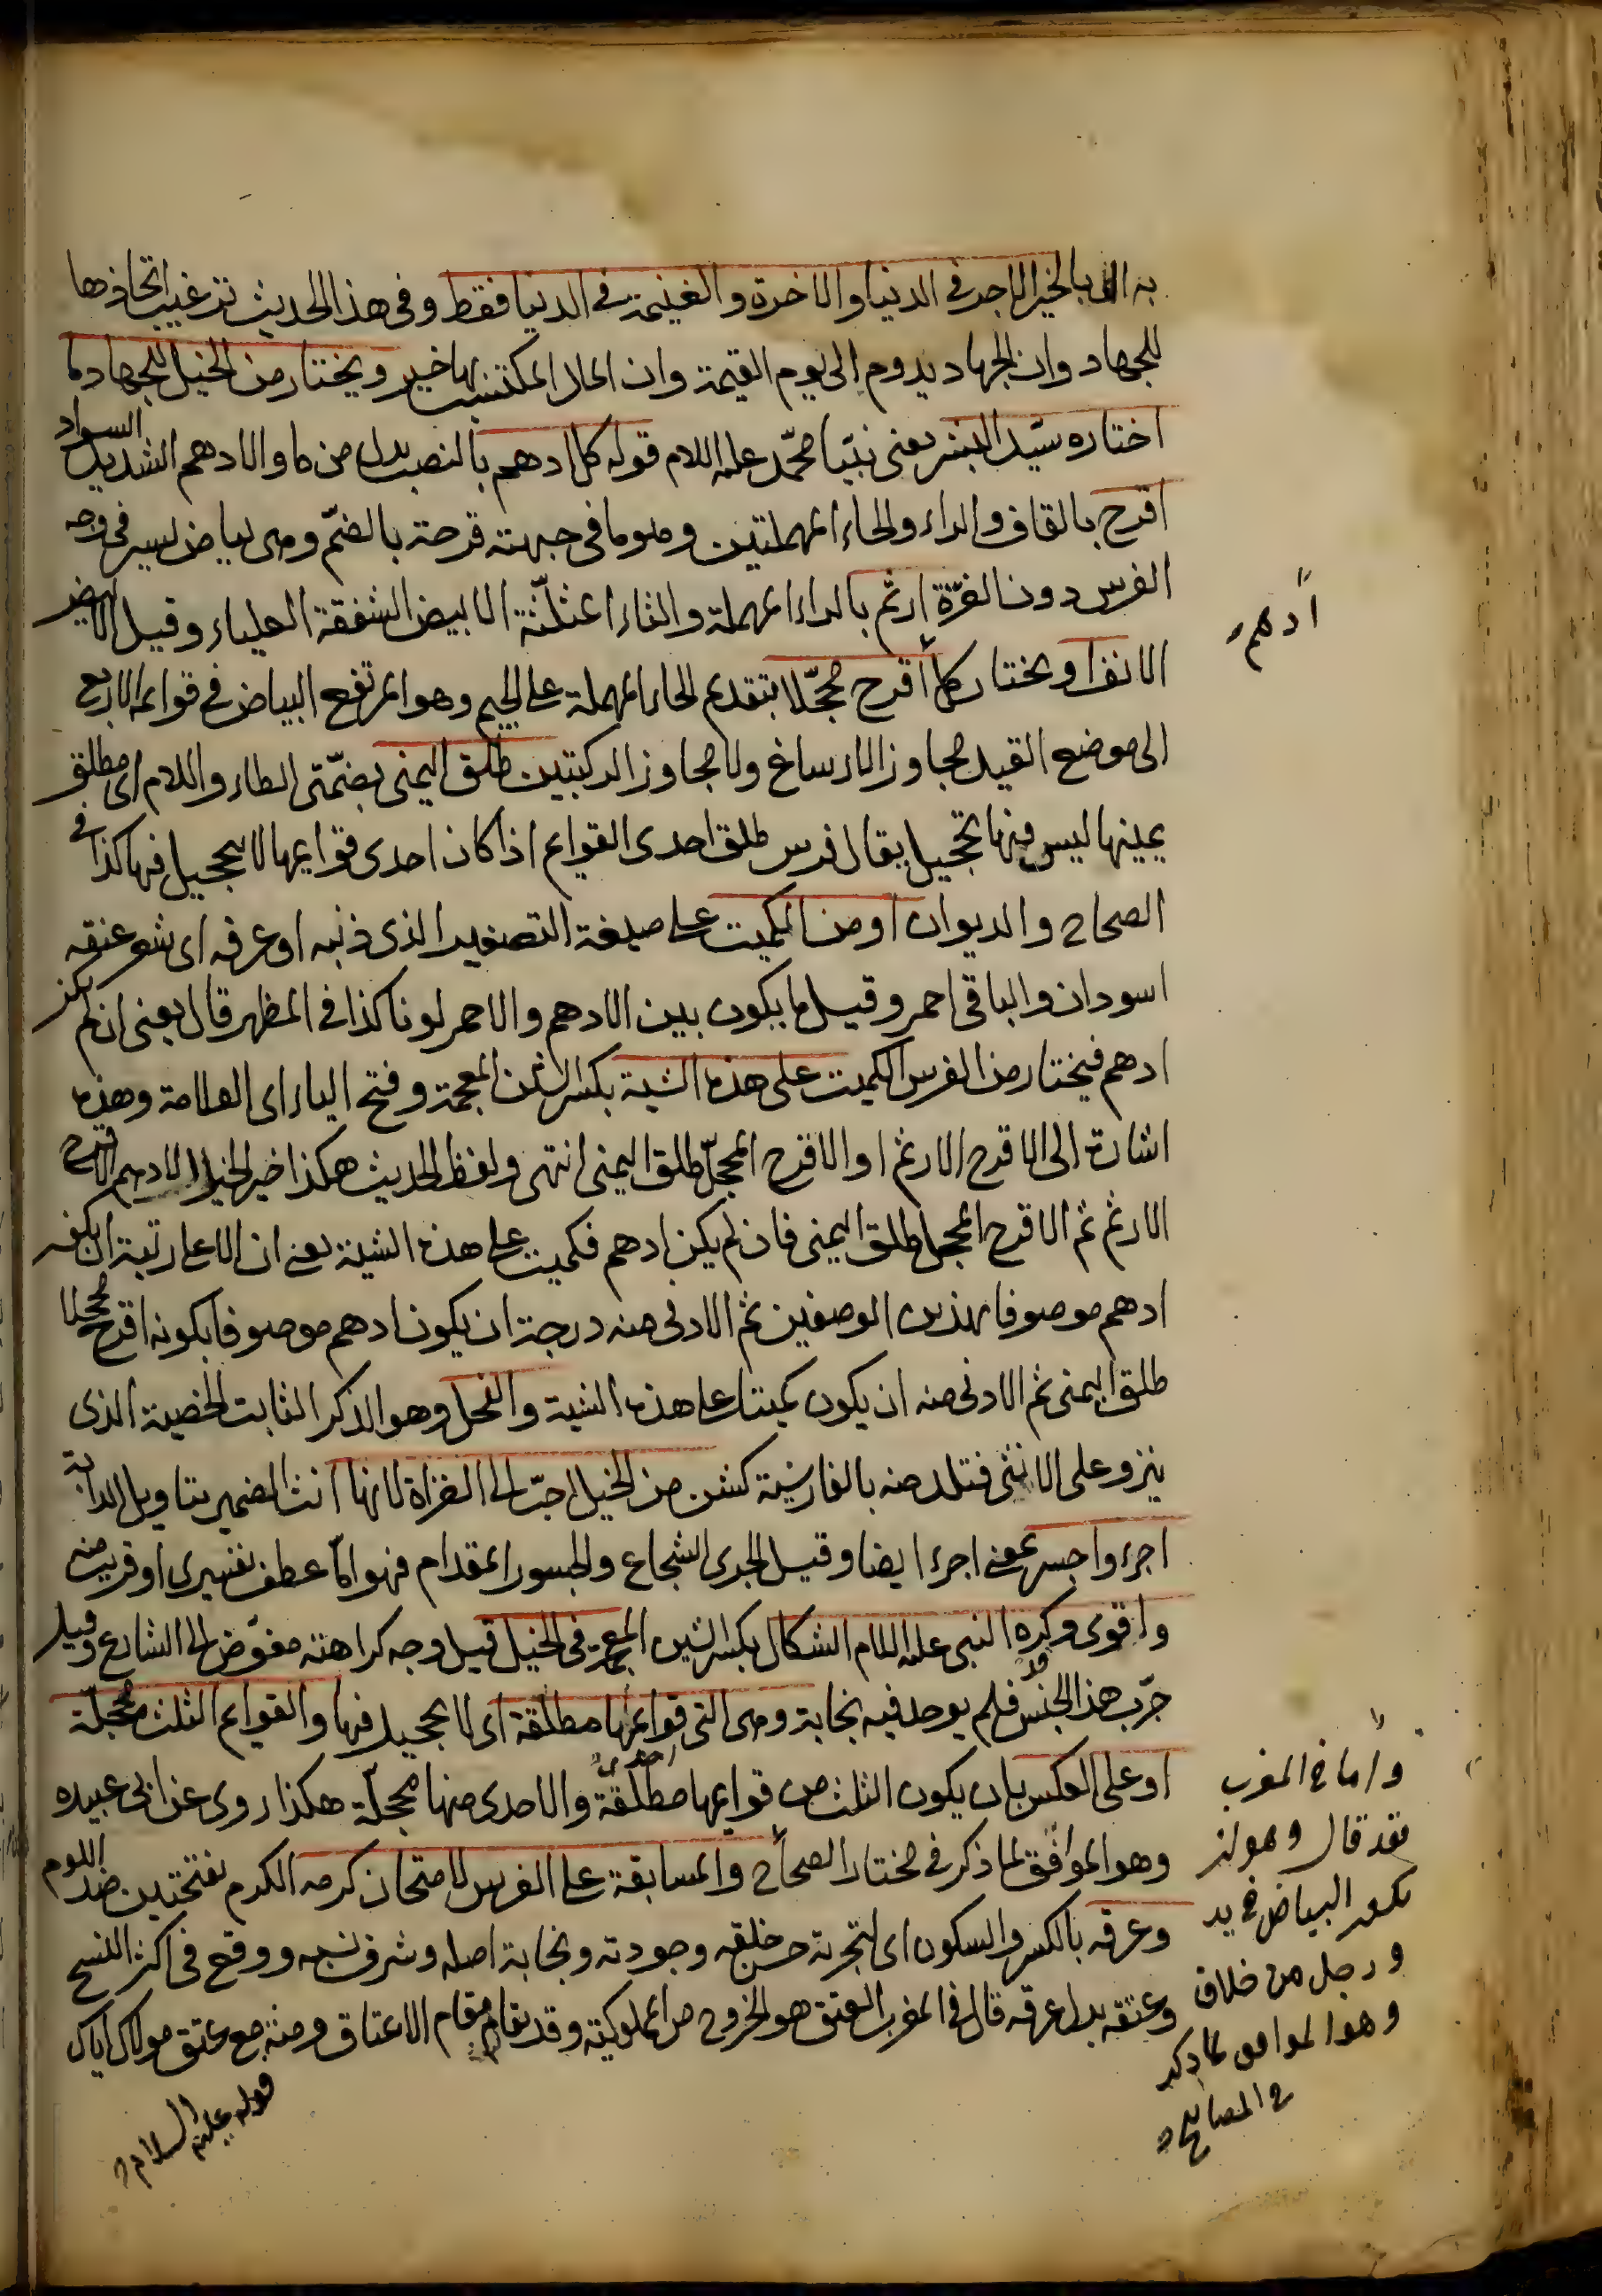 به اى بالخير الاجر فى الدنيا والاخرة والغنيمة فى الدنيا فقط وفى هذا الحديث ترغيب اتخاذها
للجهاد وان الجهاد يدوم الى يوم القيمة وان المال المكتسب بها خير ويختار من الخيل للجهاد ما
اختاره سيد البشر يعنى نبيّنا محمّد عليه السلام قوله كل ادهم بالنصب بدل من ما والادهم الشديد السواد
اقرح بالقاف والراء والحاء المهملتين وهو ما فى جبهته قرحة بالضمّ وهى بياض يسير فى وجه
الفرس دون الغرّة ارثم بالراء المهملة والثاء المثلّثة الابيض الشفة العلياء وقيل الابيض
الانف او يختار كل أقرح محجّلا بتقديم الحاء المهملة على الجيم وهو المرتفع البياض فى قوائمه الاربع
الى موضع القيد مجاوز الارساغ ولا مجاوز الركبتين طلق اليمنى بضمّتى الطاء واللام اى مطلق
يمينها ليس فيها تحجيل يقال فرس طلق احدى القوايم اذا كان احدى قوايمها لا تحجيل فيها كذا فى
الصحاح والديوان او من الكميت على صيغة التصغير الذى ذنبه او عرفه اى شعر عنقه
اسودان والباقى احمر وقيل ما يكون بين الادهم والاحمر لونا كذا فى المظهر قال يعنى ان لم يكن
ادهم فيختار من الفرس الكميت على هذه الشية بكسر الشين المعجمة وفتح الياء اى العلامة وهذه
اشارة الى الاقرح الارثم او الاقرح المحجّل طلق اليمنى انتهى ولفظ الحديث هكذا خير الخيل الادهم الاقرح
الارثم ثم الاقرح المحجل طلق اليمنى فان لم يكن ادهم فكميت على هذه الشية يعنى ان الاعلى رتبة ان يكون
ادهم موصوفا بهذين الوصفين ثم الادنى منه درجة ان يكون ادهم موصوفا بكونه اقرح محجلا
طلق اليمنى ثم الادنى منه ان يكون كميتا على هذه الشية والفحل وهو الذكر الثابت الخصية الذى
ينزو على الانثى فتلد منه بالفارسية كشن من الخيل احبّ الى الغزاة لانها انث الضمير بتاويل الدابة
اجرء واجسر بمعنى اجرء ايضا وقيل الجرى الشجاع والجسور المقدام فهو امّا عطف تفسيرى او قريب منه
واقوى وكره النبى عليه السلام الشكال بكسر الشين المعجمة فى الخيل قيل وجه كراهته مفوّض الى الشارع وقيل
جرّب هذا الجنس فلم يوجد فيه نجابة وهى التى قوائمها مطلقة اى لا تحجيل فيها والقوايم الثلث محجّلة
او على العكس بان يكون الثلث من قوايمها مطلقة والاحدى منها محجّلة هكذا روى عن ابى عبيده
وهو الموافق لما ذكر فى مختار الصحاح والمسابقة على الفرس لامتحان كرمه الكرم بفتحتين ضد اللوم
وعرقه بالكسر والسكون اى لتجربة حسن خلقه وجودته ونجابة اصله وشرف نسبه ووقع فى اكثر النسخ
وعتقه بدل عرقه قال فى المغرب العتق هو الخروج من المملوكية وقد يقام مقام الاعتاق ومنه مع عتق مولاك اياك
قوله عليه السلام
أدهم
وأما فى المغرب
فقد قال وهو ان
يكون البياض فى يد
ورجل من خلاف
وهو الموافق لما ذكر
فى المصابيح